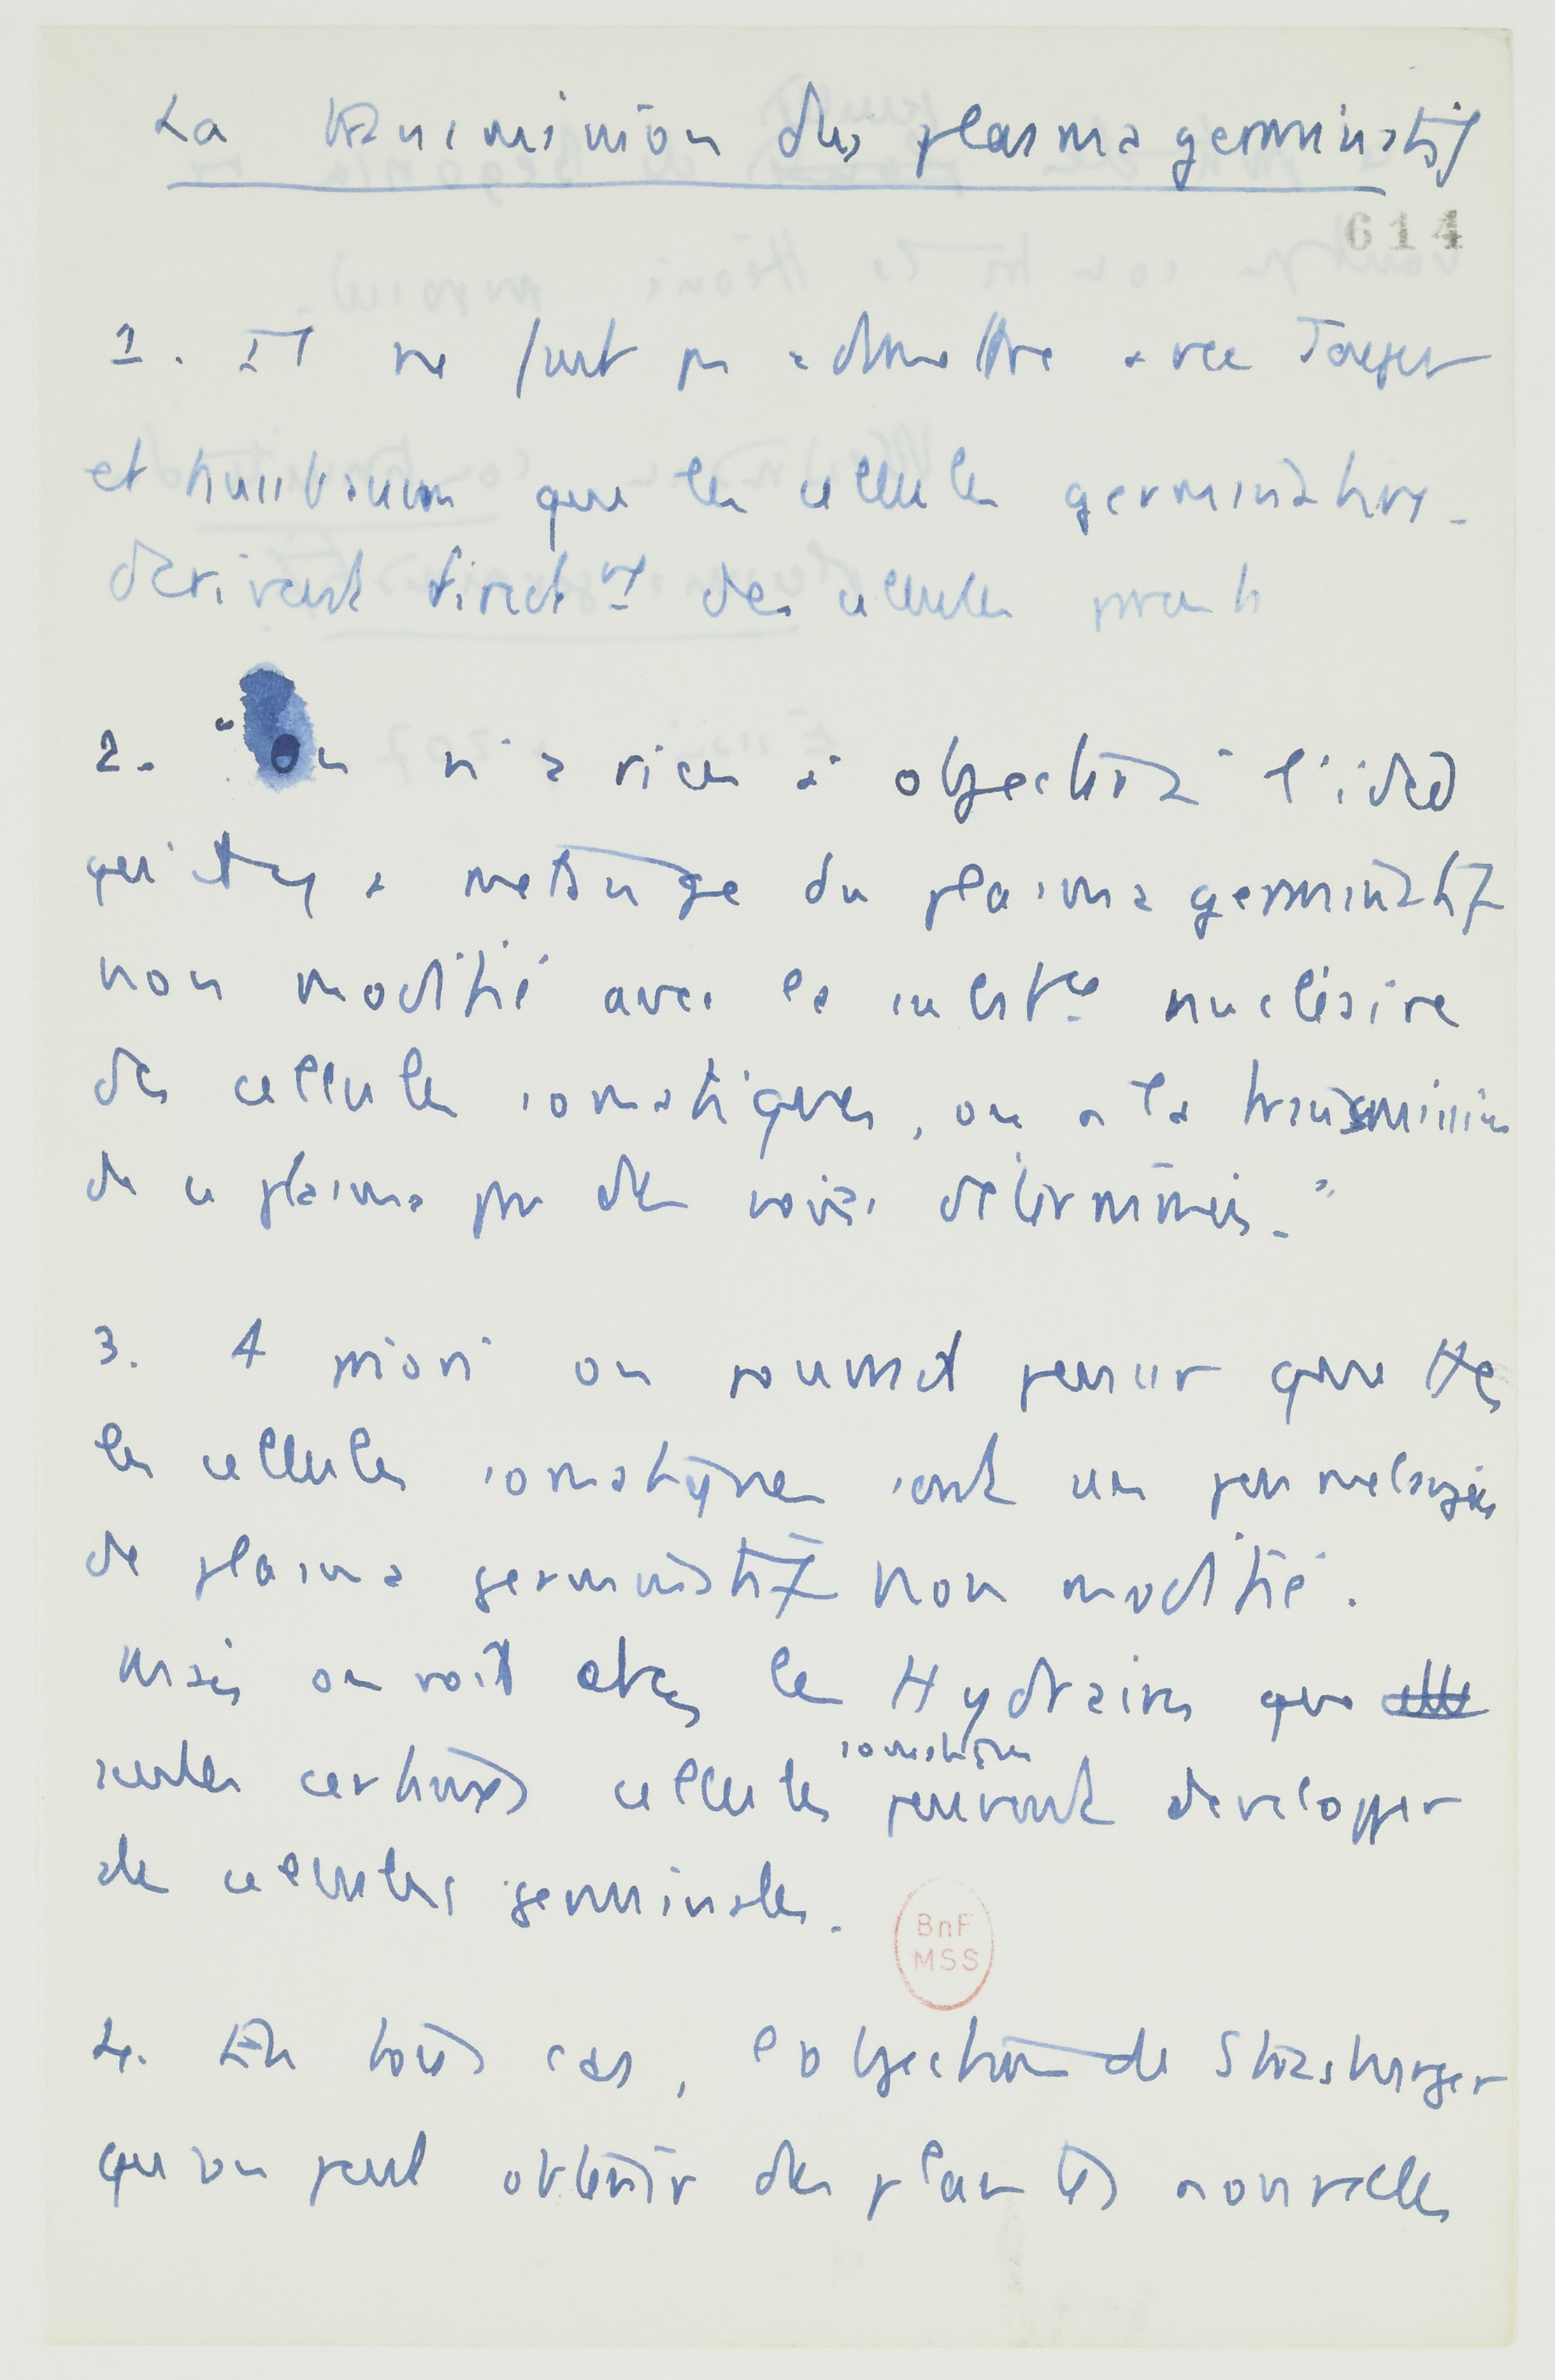 La transmission du plasma germinatif
614
1. Il ne faut pas admettre avec Jaeger
et Nussbaum que les cellules germinatives
derivent direct^mt des cellules
2. "On n'a rien à objecter à l'idée
qu'il y a melange du plasma germinatif
non modifié avec la subst^ce nucléaire
des cellules somatiques, ou a la transmission
de ce plasma par des voies déterminées."
3. A priori on pourrait penser que ttes
les cellules somatiques sont un peu melangées
de plasma germinatif non modifié.
Mais on voit chez les Hydraires que
seules certaines cellules somatiques peuvent developper
des cellules germinales.
BnF
MSS
4. En tous cas, l'objection de Strasburger
qu'on peut obtenir des plantes nouvelles